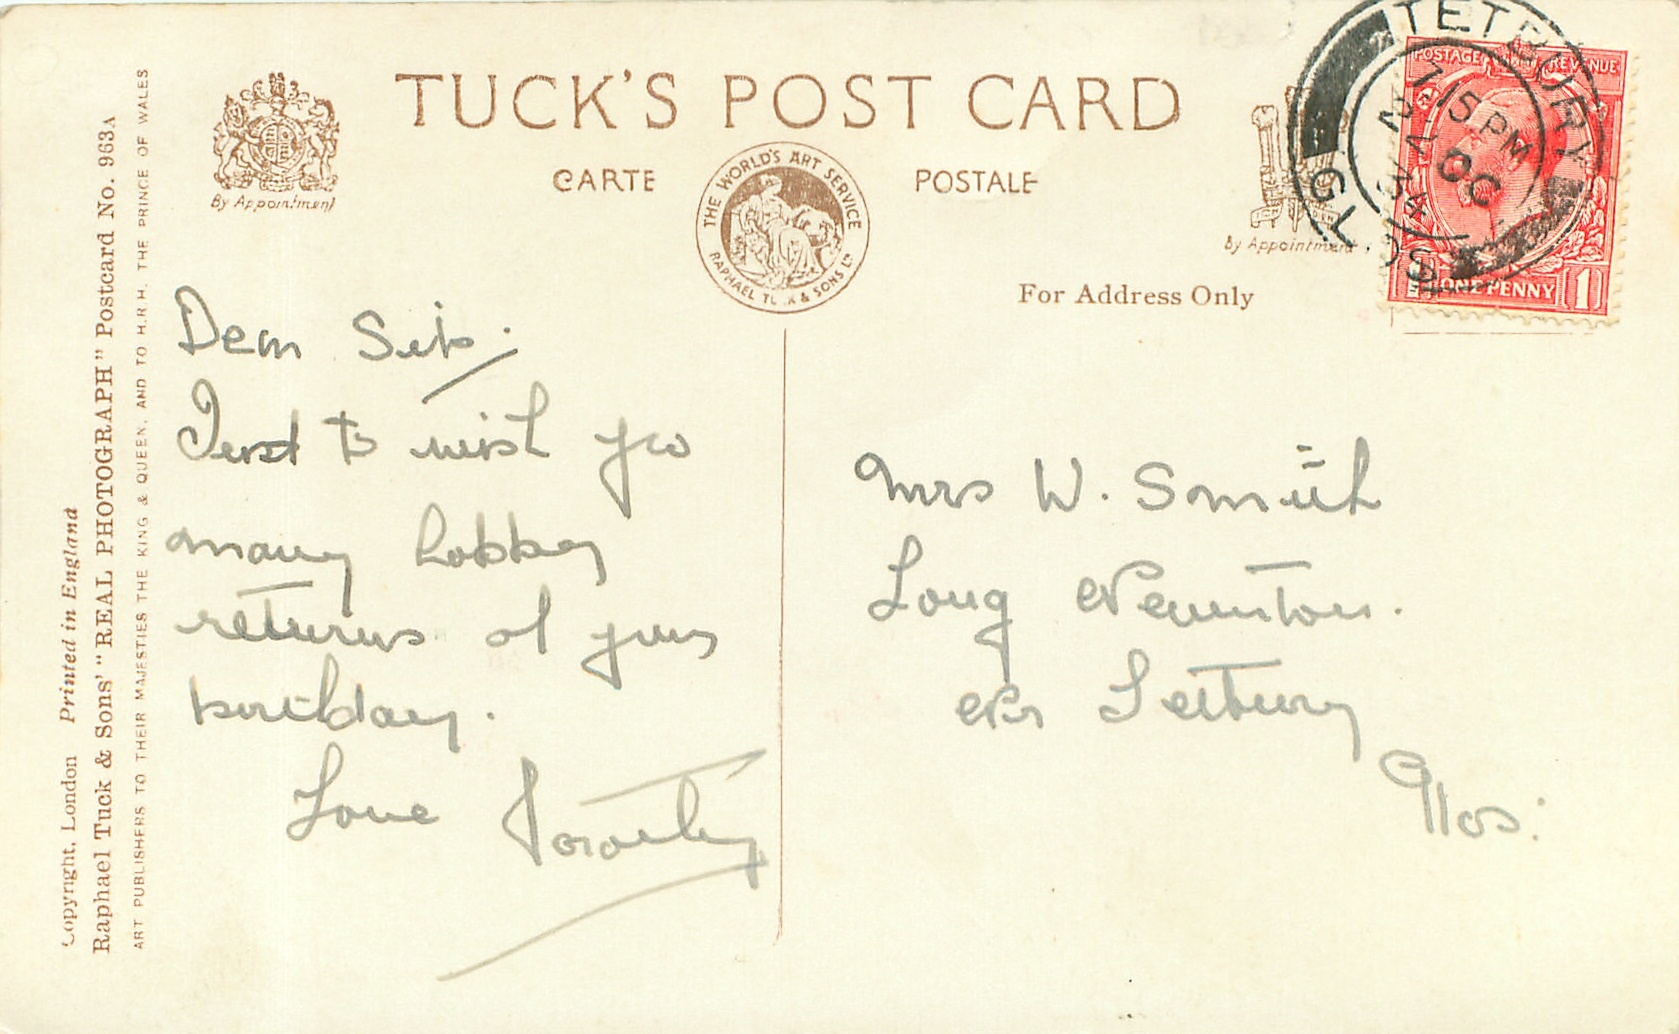 TUCK'S POST CARD
CARTE POSTALE
By Appointment
THE WORLD'S ART SERVICE
RAPHAEL TUCK & SONS LTD
By Appointment
For Address Only
TETBURY
GLOS
7 15 PM
OC
34
POSTAGE REVENUE
ONE PENNY 1
Copyright, London Printed in England
Raphael Tuck & Sons' "REAL PHOTOGRAPH" Postcard No. 963A
ART PUBLISHERS TO THEIR MAJESTIES THE KING & QUEEN, AND TO H.R.H. THE PRINCE OF WALES
Dear Sis.
Just to wish you
many happy
returns of your
birthday.
Love Dorothy
Mrs W. Smith
Long Newnton.
Nr Tetbury
Glos: